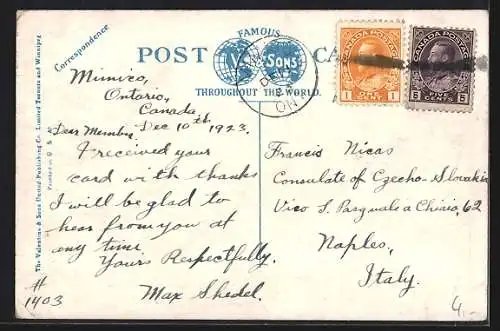 Correspondence
POST CA
FAMOUS
V SONS
THROUGHOUT THE WORLD.
DE
ONT
CANADA POSTAGE
1 ONE CENT 1
CANADA POSTAGE
5 FIVE CENTS 5
The Valentine & Sons United Publishing Co. Limited Toronto and Winnipeg
Printed in G. B.
Mimico,
Ontario,
Canada.
Dec 10th 1923.
Dear Member,
I received your
card with thanks
I will be glad to
hear from you at
any time
Yours Respectfully.
Max Shedel.
#
1403
Francis Nicas
Consulate of Czecho-Slovakia
Vico S. Pasquale a Chiaio, 62
Naples,
Italy.
4,-